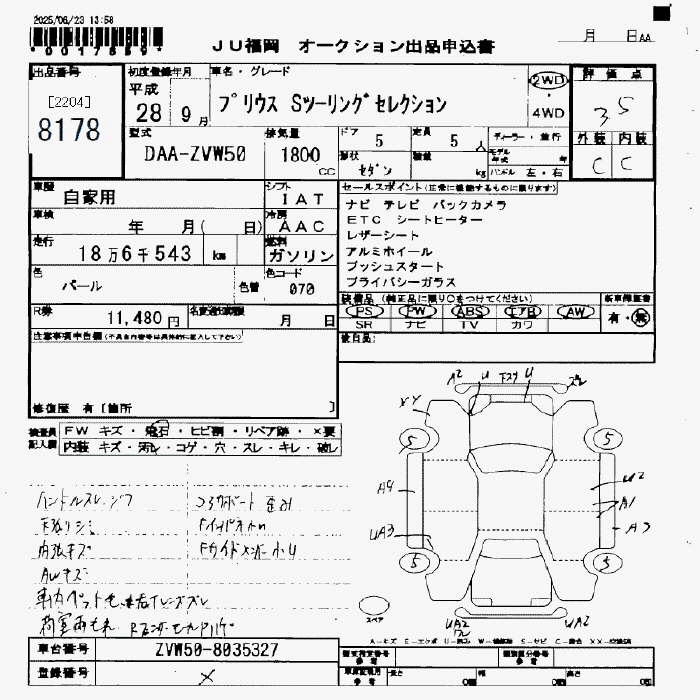 2025/06/23 13:58
*0017859*
JU福岡 オークション出品申込書
月 日 AA
出品番号
[2204]
8178
初度登録年月
平成
28 9月
車名・グレード
プリウス Sツーリングセレクション
2WD
・
4WD
評価点
3.5
外装 内装
C C
型式
DAA-ZVW50
排気量
1800 CC
ドア 5
定員 5 人
形状 セダン
積載 kg
ディーラー・並行
モデル年式 年
ハンドル 左・右
車歴
自家用
シフト
IAT
車検
年 月( 日)
冷房
AAC
走行
18万6千543 km
燃料
ガソリン
色
パール
色替
色コード
070
セールスポイント(正常に機能するものに限ります)
ナビ テレビ バックカメラ
ETC シートヒーター
レザーシート
アルミホイール
プッシュスタート
プライバシーガラス
R券
11,480円
名義変更期限
月 日
装備品 (純正品に限り○をつけてください)
PS PW ABS エアB AW
SR ナビ TV カワ
新車保証書
有・無
後日品:
注意事項申告欄(不具合内容等は具体的に記入して下さい)
修復歴 有 [箇所 ]
検査員記入欄
FW キズ・飛石・ヒビ割・リペア跡・×要
内装 キズ・汚レ・コゲ・穴・スレ・キレ・破レ
ハンドルスレ、シワ
内張キズ
AWキズ
コアサポート 歪み
A2 U 下スリ U
XY
5 5
A4
U2
A1
A3
UA3
5 5
スペア
UA2 UA2
A-キズ E-エクボ U-凹み W-補修跡 S-サビ C-腐食 XX-交換済
車台番号
ZVW50-8035327
登録番号
×
型式指定番号
類別区分番号
長さ 幅 高さ
cm cm cm